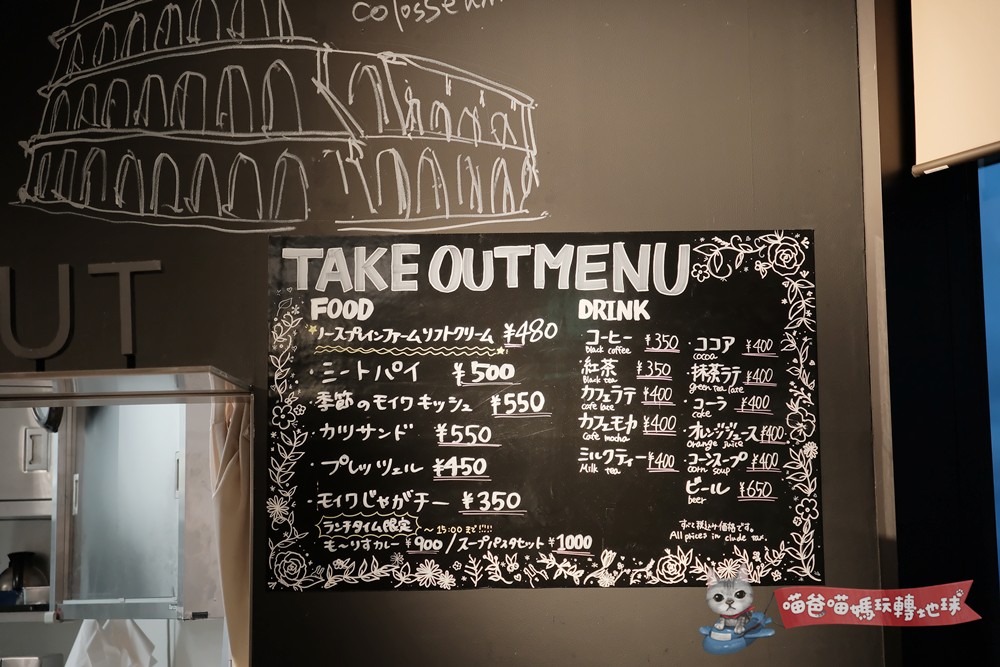 colosseum
UT
TAKE OUT MENU
FOOD
ノースプレインファームソフトクリーム ¥480
・ミートパイ ¥500
・季節のモイワキッシュ ¥550
・カツサンド ¥550
・プレッツェル ¥450
・モイワじゃがチー ¥350
ランチタイム限定 〜15:00まで!!!!
も〜りすカレー ¥900 / スープパスタセット ¥1000
DRINK
コーヒー ¥350
black coffee
・紅茶 ¥350
Black tea
カフェラテ ¥400
cafe late
カフェモカ ¥400
Cafe mocha
ミルクティー ¥400
Milk tea
・ココア ¥400
cocoa
・抹茶ラテ ¥400
green tea late
・コーラ ¥400
coke
・オレンジジュース ¥400
orange juice
・コーンスープ ¥400
corn soup
ビール ¥650
beer
すべて税込み価格です。
All prices in clude tax.
喵爸喵媽玩轉地球